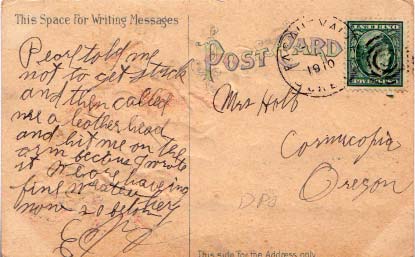 This Space for Writing Messages
POST CARD
1910
ORE.
Pearl told me
not to get stuck
and then called
me a leather head
and hit me on the
arm because I wrote
it
having
fine weather
now 20 below
Mrs Holt
Cornucopia
Oregon
DPO
This side for the Address only